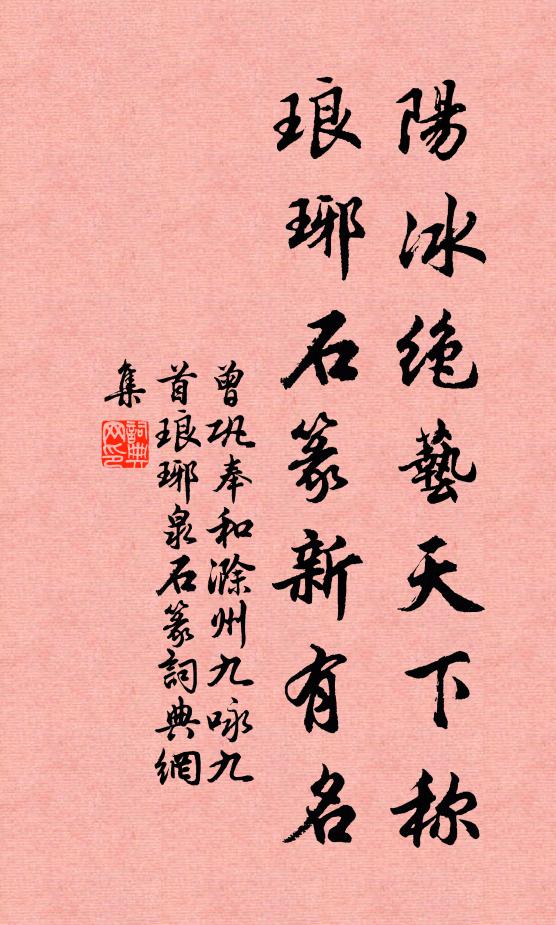 陽冰绝藝天下称
琅琊石篆新有名
曾巩奉和滁州九咏九
首琅琊泉石篆詞典網
集
詞典网印